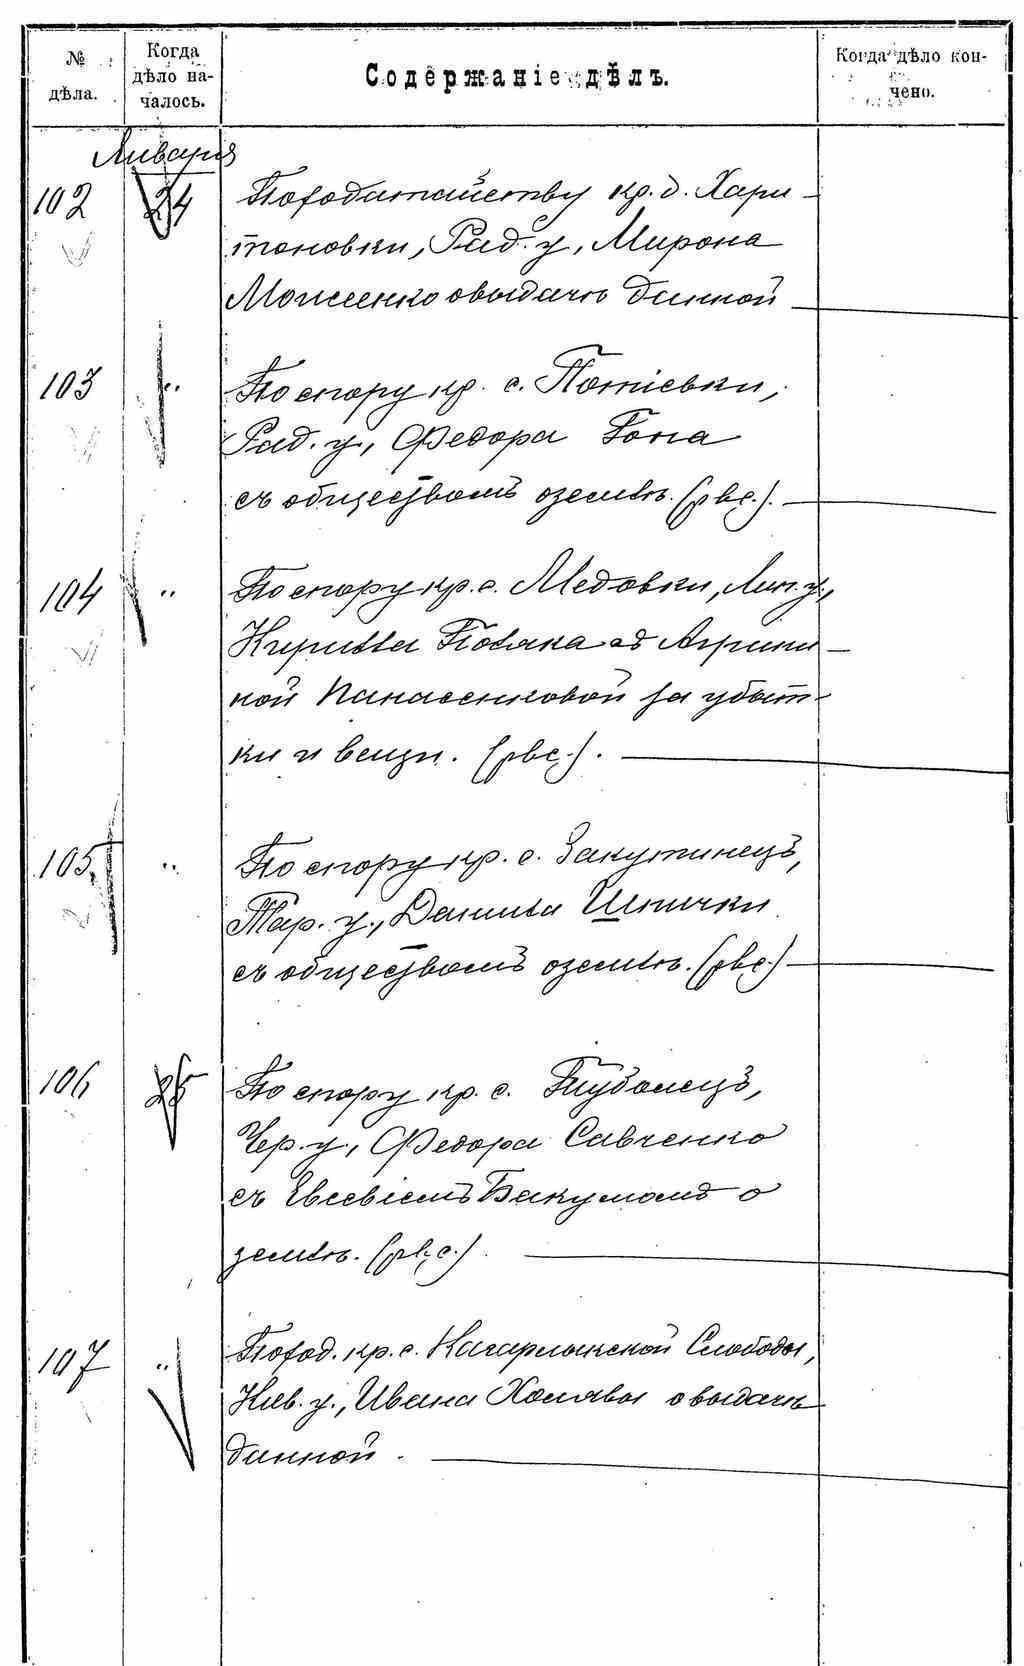 № дѣла.
Когда дѣло на-
чалось.
Содержаніе дѣлъ.
Когда дѣло кон-
чено.
Января
102 24 По ходатайству кр. д. Хари-
тоновки, Рад. у., Мирона
Моисеенко о выдачѣ данной
103 " По спору кр. с. Потіевки,
Рад. у., Федора Гона
съ обществомъ о землѣ. (рвс.).
104 " По спору кр. с. Медовки, Лип. у.,
Кирилла Поляка съ Агрипи-
ной Панасенковой за убыт-
ки и вещи. (рвс.).
105 " По спору кр. с. Закутинецъ,
Тар. у., Данила Шпички
съ обществомъ о землѣ. (рвс.)
106 25 По спору кр. с.
Чер. у., Федора Савченко
съ Евсевіемъ Бакумомъ о
землѣ. (рвс.)
107 " По ход. кр. с. Кагарлыкской Слободы,
Кіев. у., Ивана Холявы о выдачѣ
данной.